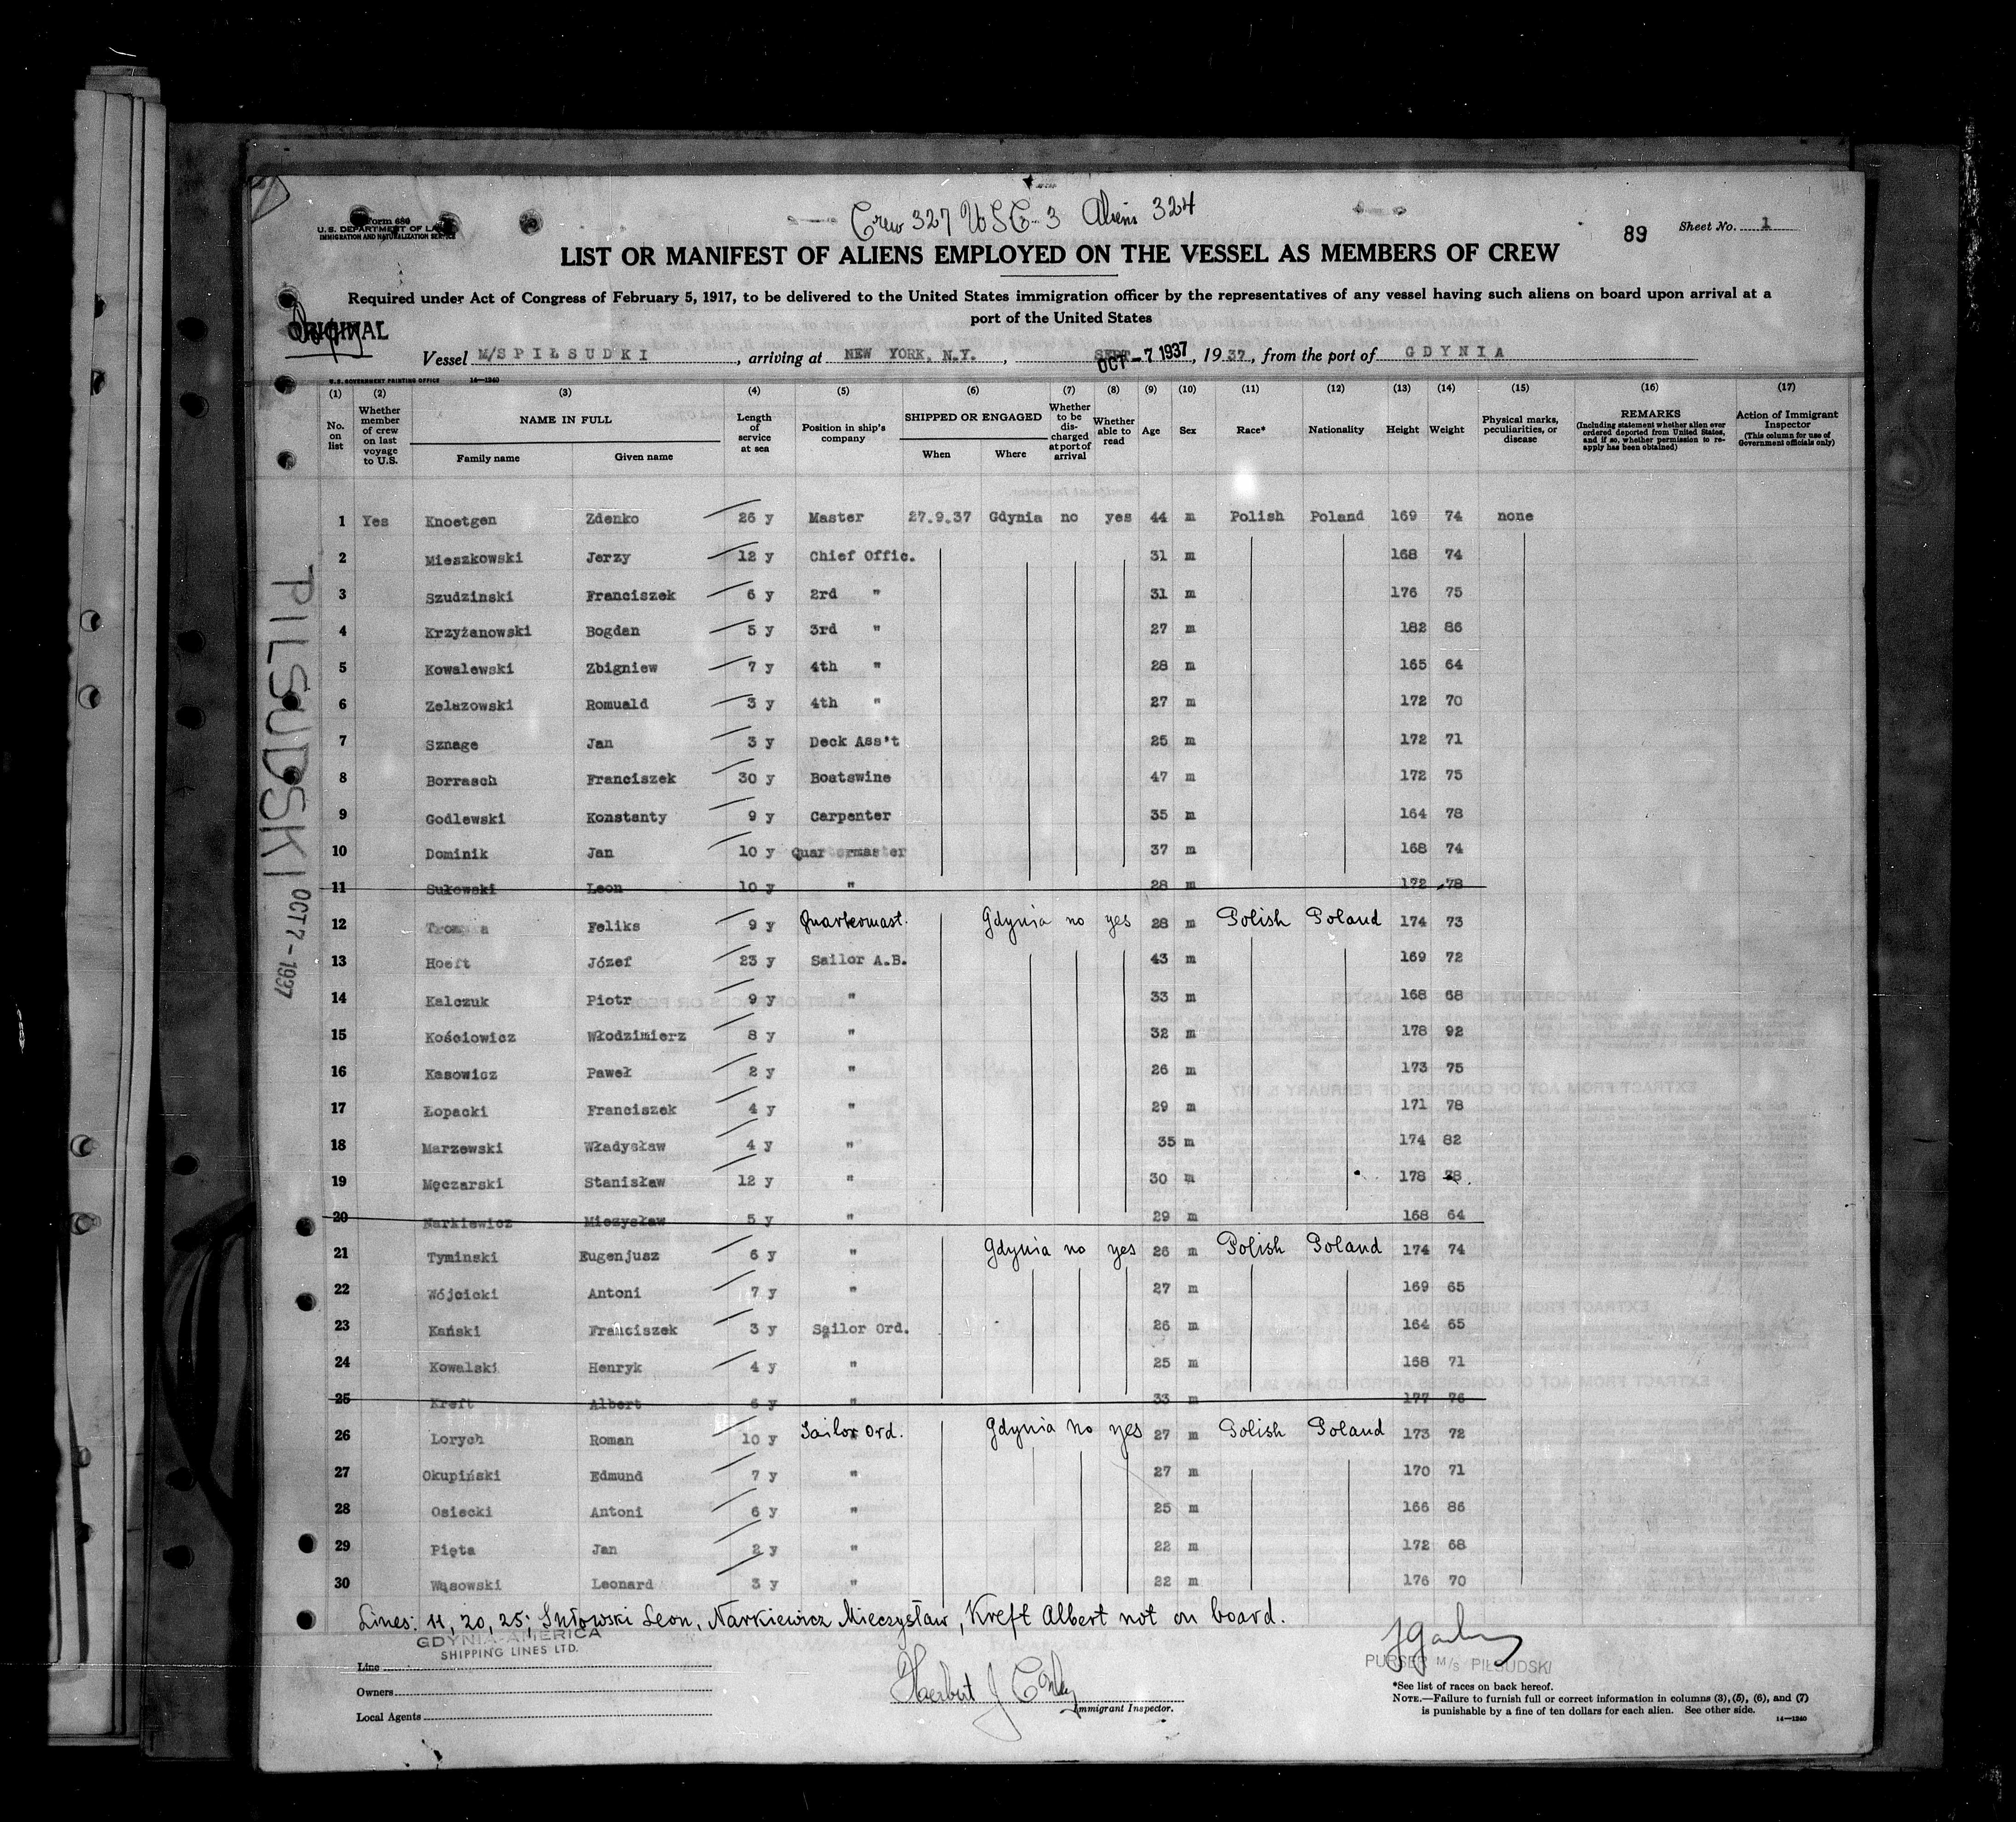 Crew 327 USC-3 Aliens 324
Form 680
U.S. DEPARTMENT OF LABOR
IMMIGRATION AND NATURALIZATION SERVICE
89
Sheet No. 1
LIST OR MANIFEST OF ALIENS EMPLOYED ON THE VESSEL AS MEMBERS OF CREW
Required under Act of Congress of February 5, 1917, to be delivered to the United States immigration officer by the representatives of any vessel having such aliens on board upon arrival at a
port of the United States
ORIGINAL
Vessel M/S PIŁSUDKI, arriving at NEW YORK, N.Y., OCT - 7 1937, 1937, from the port of GDYNIA
U.S. GOVERNMENT PRINTING OFFICE 14-1240
(1) (2) (3) (4) (5) (6) (7) (8) (9) (10) (11) (12) (13) (14) (15) (16) (17)
No. on list
Whether member of crew on last voyage to U.S.
NAME IN FULL
Family name Given name
Length of service at sea
Position in ship's company
SHIPPED OR ENGAGED
When Where
Whether to be discharged at port of arrival
Whether able to read
Age
Sex
Race*
Nationality
Height
Weight
Physical marks, peculiarities, or disease
REMARKS
(Including statement whether alien ever ordered deported from United States, and if so, whether permission to re-apply has been obtained)
Action of Immigrant Inspector
(This column for use of Government officials only)
1 Yes Knoetgen Zdenko 26 y Master 27.9.37 Gdynia no yes 44 m Polish Poland 169 74 none
2 Mieszkowski Jerzy 12 y Chief Offic. 31 m 168 74
3 Szudzinski Franciszek 6 y 2rd " 31 m 176 75
4 Krzyżanowski Bogdan 5 y 3rd " 27 m 182 86
5 Kowalewski Zbigniew 7 y 4th " 28 m 165 64
6 Zelazowski Romuald 3 y 4th " 27 m 172 70
7 Sznage Jan 3 y Deck Ass't 25 m 172 71
8 Borrasch Franciszek 30 y Boatswine 47 m 172 75
9 Godlewski Konstanty 9 y Carpenter 35 m 164 78
10 Dominik Jan 10 y Quartermaster 37 m 168 74
11 Sułowski Leon 10 y " 28 m 172 78
12 Feliks 9 y Quartermast. Gdynia no yes 28 m Polish Poland 174 73
13 Hoeft Józef 23 y Sailor A.B. 43 m 169 72
14 Kalczuk Piotr 9 y " 33 m 168 68
15 Kościowicz Włodzimierz 8 y " 32 m 178 92
16 Kasowicz Paweł 2 y " 26 m 173 75
17 Łopacki Franciszek 4 y " 29 m 171 78
18 Marzewski Władysław 4 y " 35 m 174 82
19 Męczarski Stanisław 12 y " 30 m 178
20 Narkiewicz Mieczysław 5 y " 29 m 168 64
21 Tyminski Eugenjusz 6 y " Gdynia no yes 26 m Polish Poland 174 74
22 Wójcicki Antoni 7 y " 27 m 169 65
23 Kański Franciszek 3 y Sailor Ord. 26 m 164 65
24 Kowalski Henryk 4 y " 25 m 168 71
25 Kreft Albert 6 y " 33 m 177 76
26 Lorych Roman 10 y Sailor Ord. Gdynia no yes 27 m Polish Poland 173 72
27 Okupiński Edmund 7 y " 27 m 170 71
28 Osiecki Antoni 6 y " 25 m 166 86
29 Pięta Jan 2 y " 22 m 172 68
30 Wąsowski Leonard 3 y " 22 m 176 70
PILSUDSKI OCT 7-1937
Lines: 11, 20, 25; Sułowski Leon, Narkiewicz Mieczysław, Kreft Albert not on board.
GDYNIA-AMERICA
SHIPPING LINES LTD.
Line
Owners
Local Agents
Herbert J
Immigrant Inspector.
PURSER M/S PIŁSUDSKI
*See list of races on back hereof.
NOTE.—Failure to furnish full or correct information in columns (3), (5), (6), and (7)
is punishable by a fine of ten dollars for each alien. See other side.
14-1240